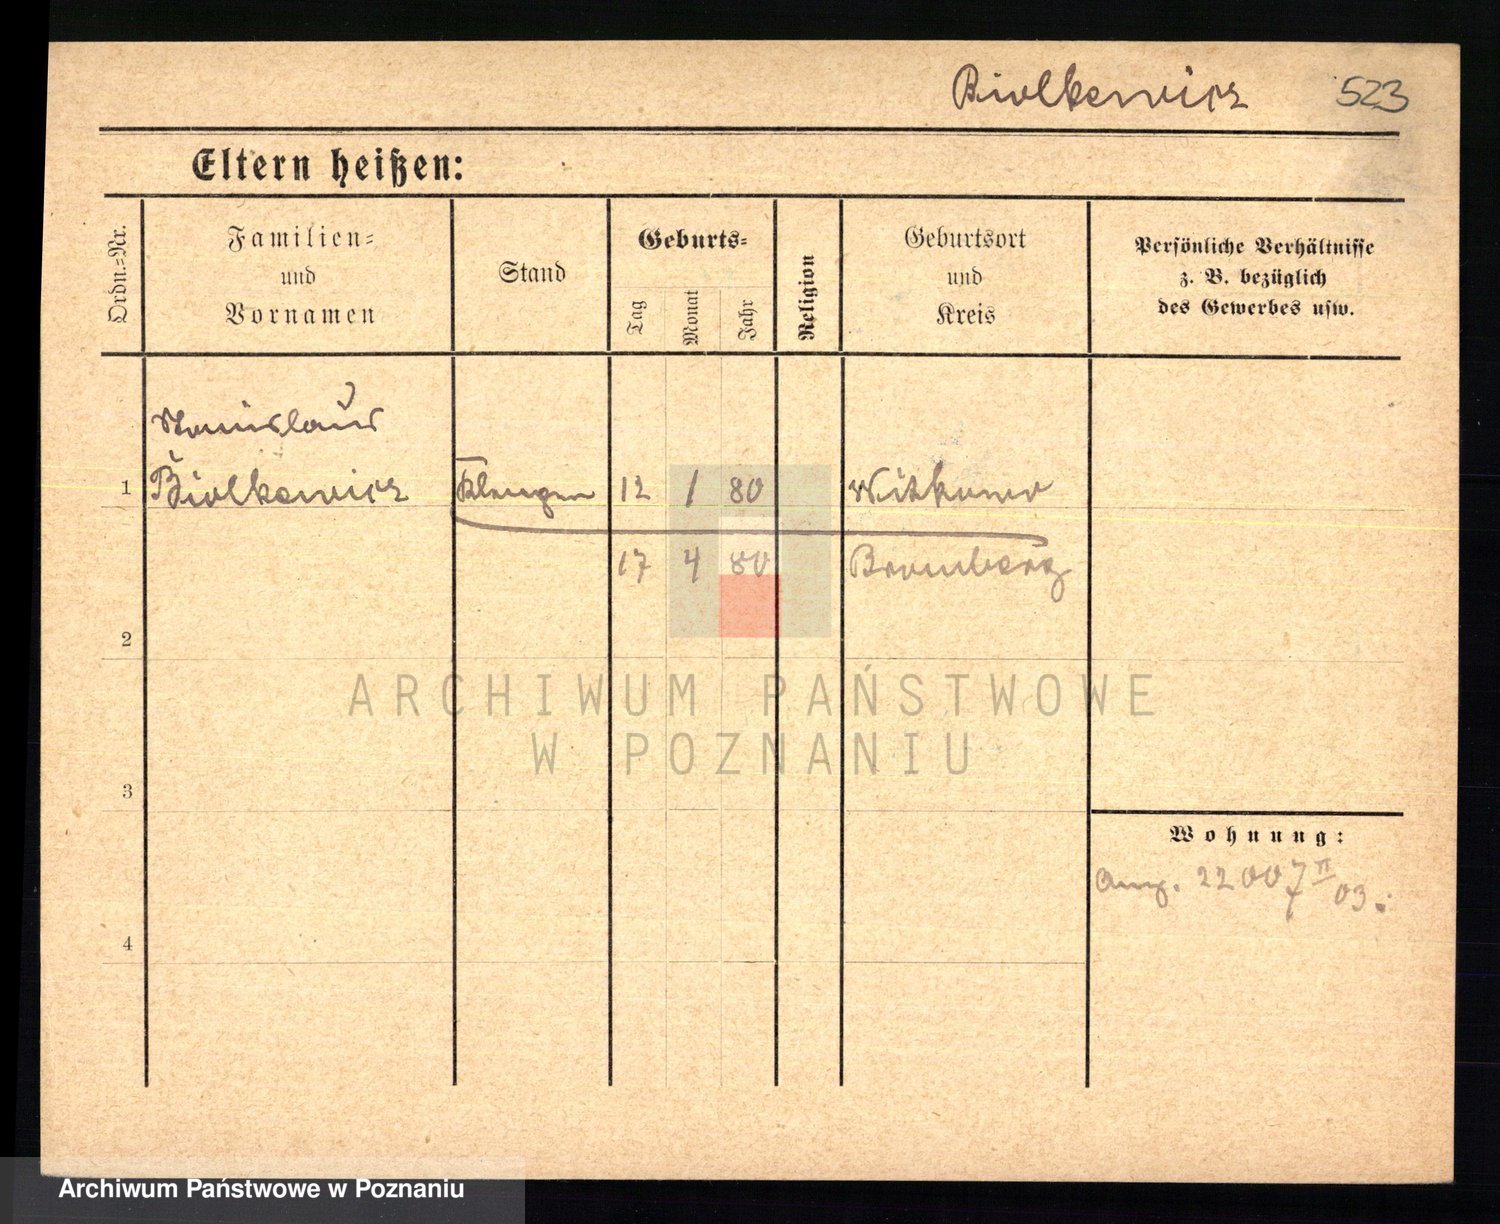 Biolkewicz 523
Eltern heißen:
Ordn.=Nr.
Familien=
und
Vornamen
Stand
Geburts=
Tag
Monat
Jahr
Religion
Geburtsort
und
Kreis
Persönliche Verhältnisse
z. B. bezüglich
des Gewerbes usw.
Stanislaus
1 Biolkewicz 12 1 80 Witkowo
17 4 80 Bromberg
2
ARCHIWUM PAŃSTWOWE
W POZNANIU
3
Wohnung:
Ang. 2200 7 II 03.
4
Archiwum Państwowe w Poznaniu